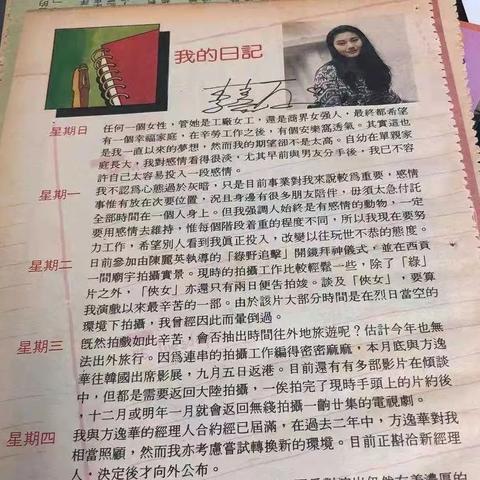 我的日記
星期日
任何一個女性，管她是工廠女工，還是商界女强人，最終都希望
有一個幸福家庭，在辛勞工作之後，有個安樂窩透氣。其實這也
是我一直以來的夢想，然而我的期望卻不是太高。自幼在單親家
庭長大，我對感情看得很淡，尤其早前與男友分手後，我已不容
許自己太容易投入一段感情。
星期一
我不認爲心態過於灰暗，只是目前事業對我來說較爲重要，感情
事惟有放在次要位置，况且身邊有很多朋友陪伴，毋須太急付託
全部時間在一個人身上。但我强調人始終是有感情的動物，一定
要用感情去維持，惟每個階段着重的程度不同，所以我現在要努
力工作，希望別人看到我眞正投入，改變以往玩世不恭的態度。
星期二
日前參加由陳麗英執導的「綠野追擊」開鏡拜神儀式，並在西貢
一間廟宇拍攝實景。現時的拍攝工作比較輕鬆一些，除了「綠」
片之外，「俠女」亦還只有兩日便告拍竣。談及「俠女」，要算
我演戲以來最辛苦的一部。由於該片大部分時間是在烈日當空的
環境下拍攝，我曾經因此而暈倒過。
星期三
旣然拍戲如此辛苦，會否抽出時間往外地旅遊呢？估計今年也無
法出外旅行。因爲連串的拍攝工作編得密密麻麻，本月底與方逸
華往韓國出席影展，九月五日返港。目前還有有多部影片在傾談
中，但都是需要返回大陸拍攝，一俟拍完了現時手頭上的片約後
，十二月或明年一月就會返回無綫拍攝一齣廿集的電視劇。
星期四
我與方逸華的經理人合約經已屆滿，在過去二年中，方逸華對我
相當照顧，然而我亦考慮嘗試轉換新的環境。目前正斟洽新經理
人，決定後才向外公布。